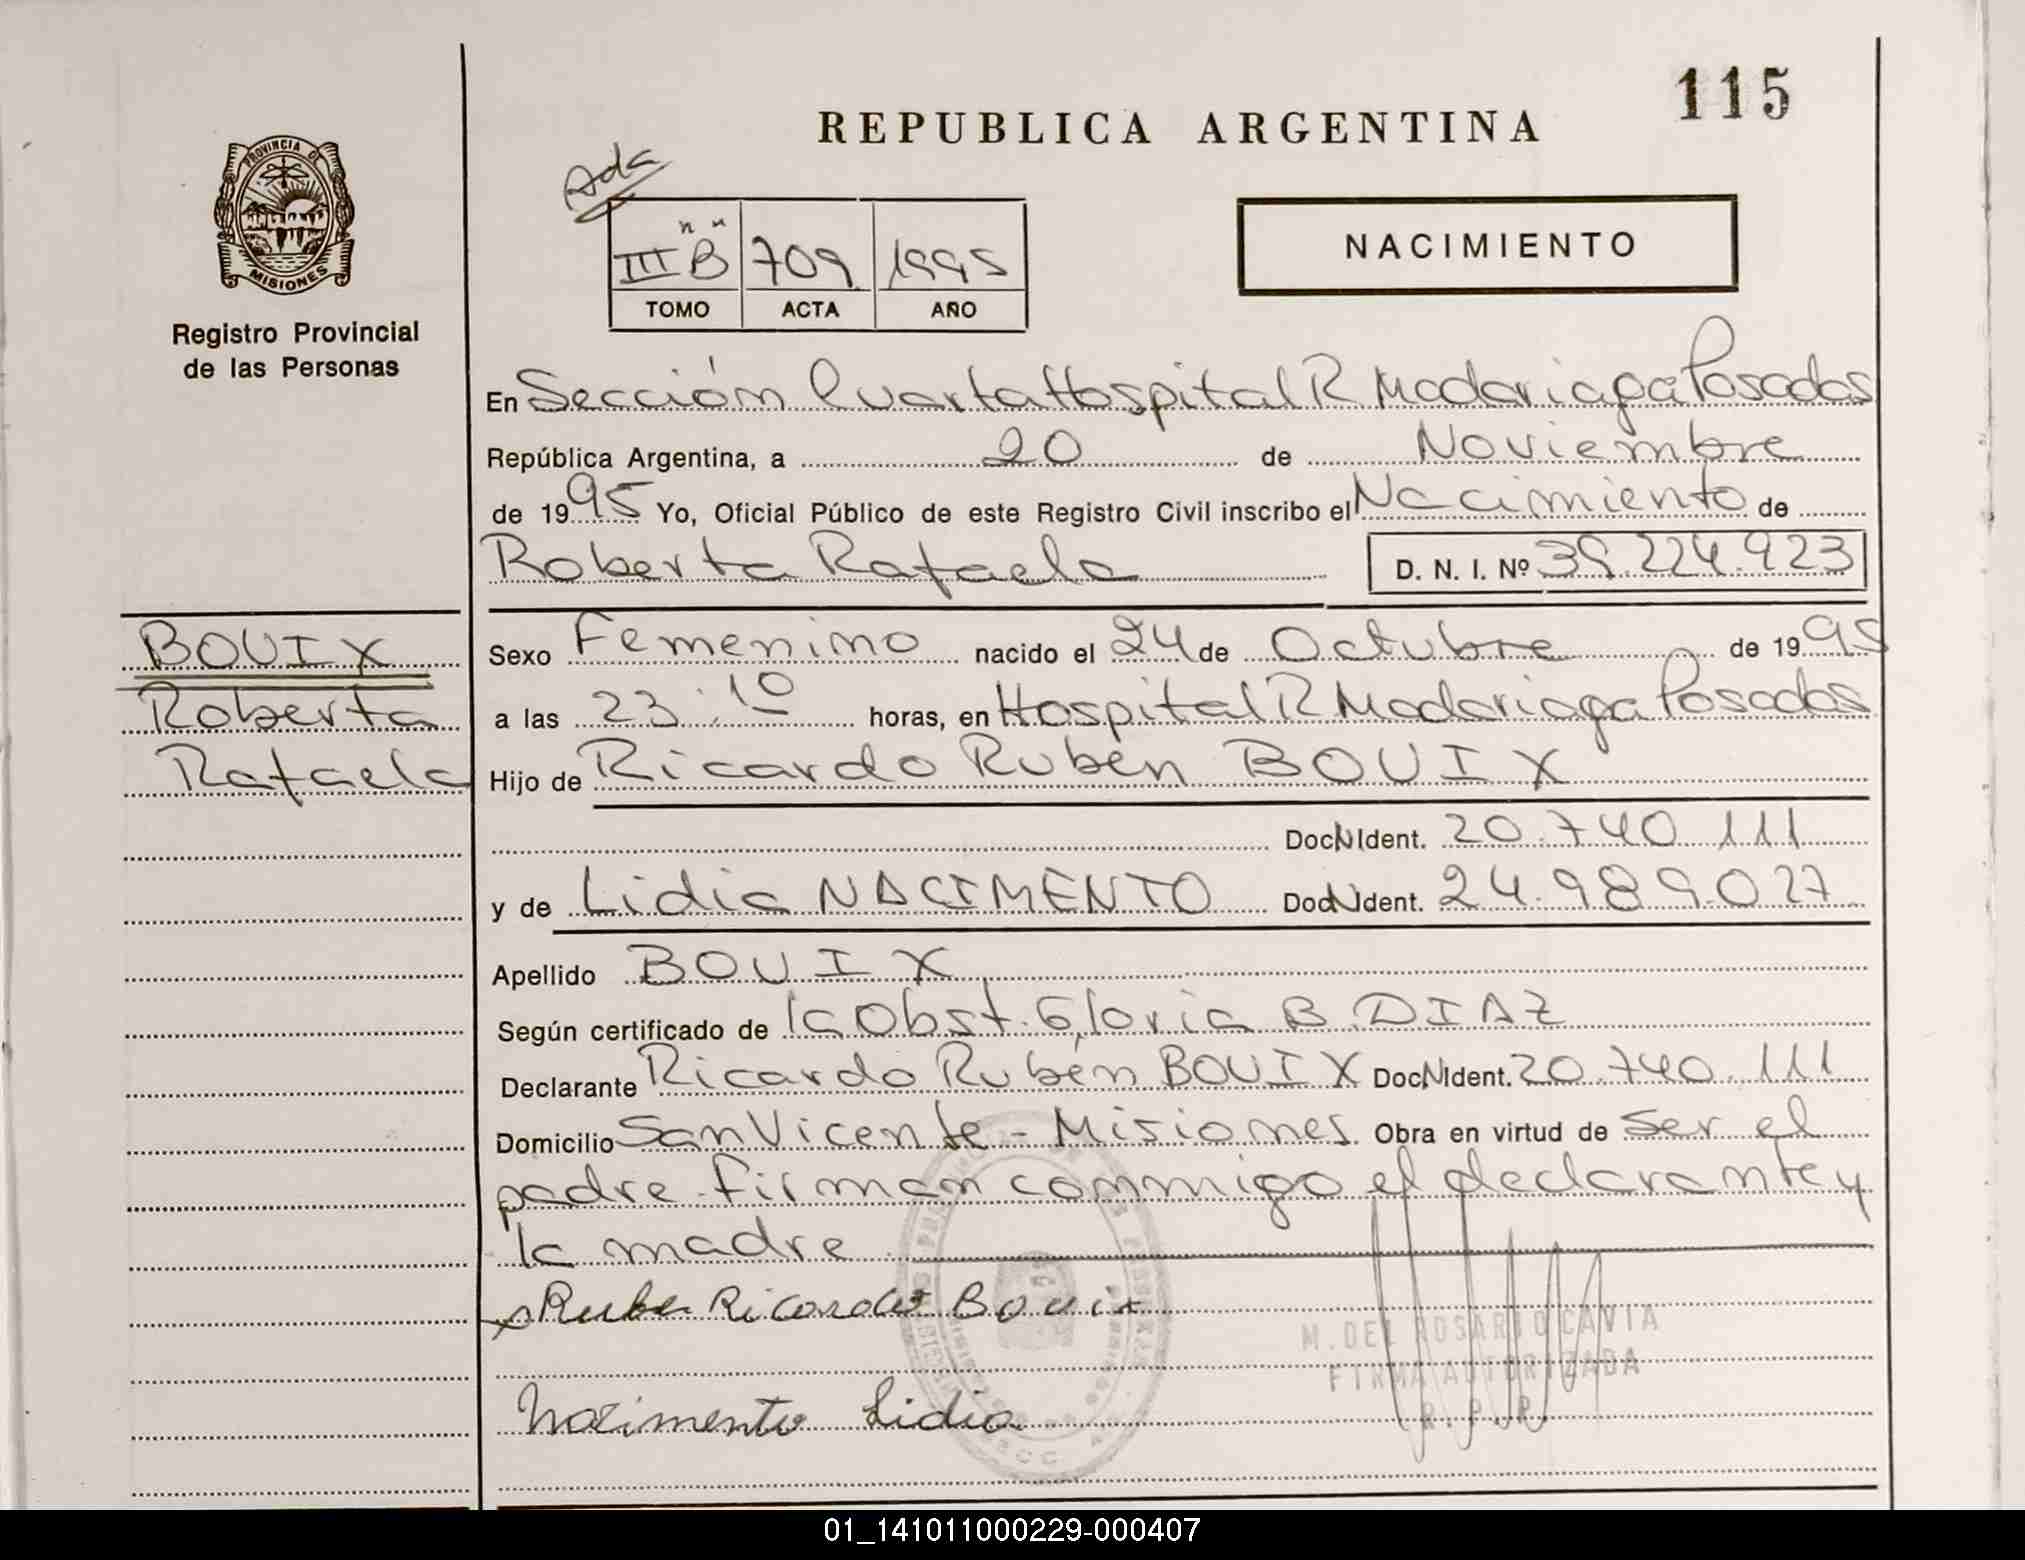 115
REPUBLICA ARGENTINA
Ada
PROVINCIA DE
MISIONES
Registro Provincial
de las Personas
III "B" 709 1995
TOMO ACTA AÑO
NACIMIENTO
En Sección Cuarta Hospital R Madariaga Posadas
República Argentina, a 20 de Noviembre
de 1995 Yo, Oficial Público de este Registro Civil inscribo el Nacimiento de
Roberta Rafaela D. N. I. Nº 39.224.923
BOUIX
Roberta
Rafaela
Sexo Femenino nacido el 24 de Octubre de 1995
a las 23:10 horas, en Hospital R Madariaga Posadas
Hijo de Ricardo Rubén BOUIX
Doc N Ident. 20.740.111
y de Lidia NACIMENTO Doc N Ident. 24.989.027
Apellido BOUIX
Según certificado de la Obst. Gloria B. DIAZ
Declarante Ricardo Rubén BOUIX Doc N Ident. 20.740.111
Domicilio San Vicente - Misiones Obra en virtud de ser el
padre. Firman conmigo el declarante y
la madre
x Ruben Ricardo Bouix
M. DEL ROSARIO CAVIA
FIRMA AUTORIZADA
R. P. P.
Nacimento Lidia
01_141011000229-000407